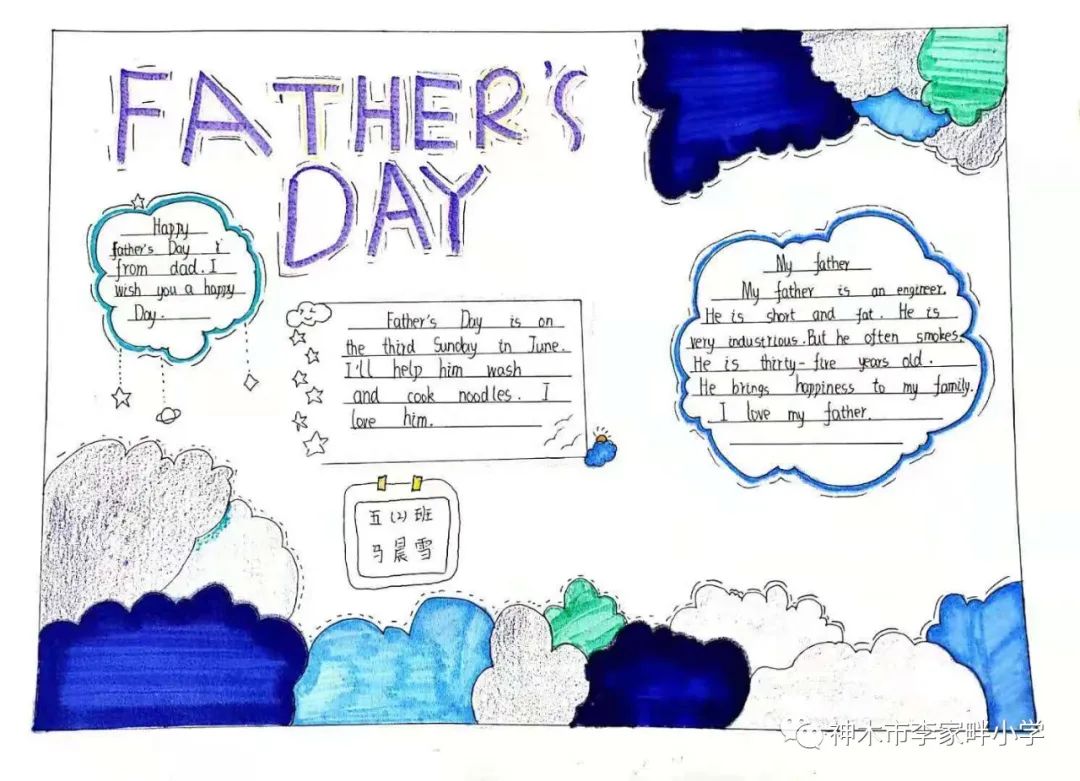 FATHER'S
DAY
Happy
father's Day i
from dad. I
wish you a happy
Day.
Father's Day is on
the third Sunday in June.
I'll help him wash
and cook noodles. I
love him.
My father
My father is an engineer.
He is short and fat. He is
very industrious. But he often smokes.
He is thirty-five years old.
He brings happiness to my family.
I love my father.
五(2)班
马晨雪
神木市李家畔小学